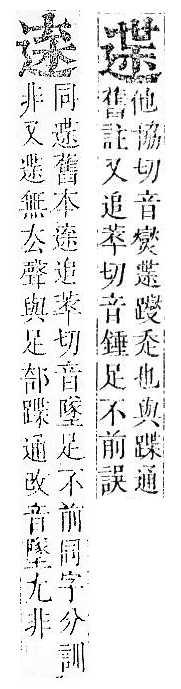 他協切音燮躞也與蹀通
舊註又追萃切音錘足不前誤
同舊本追萃切音墜足不前同字分訓
非又無去聲與足部蹀通改音墜尤非